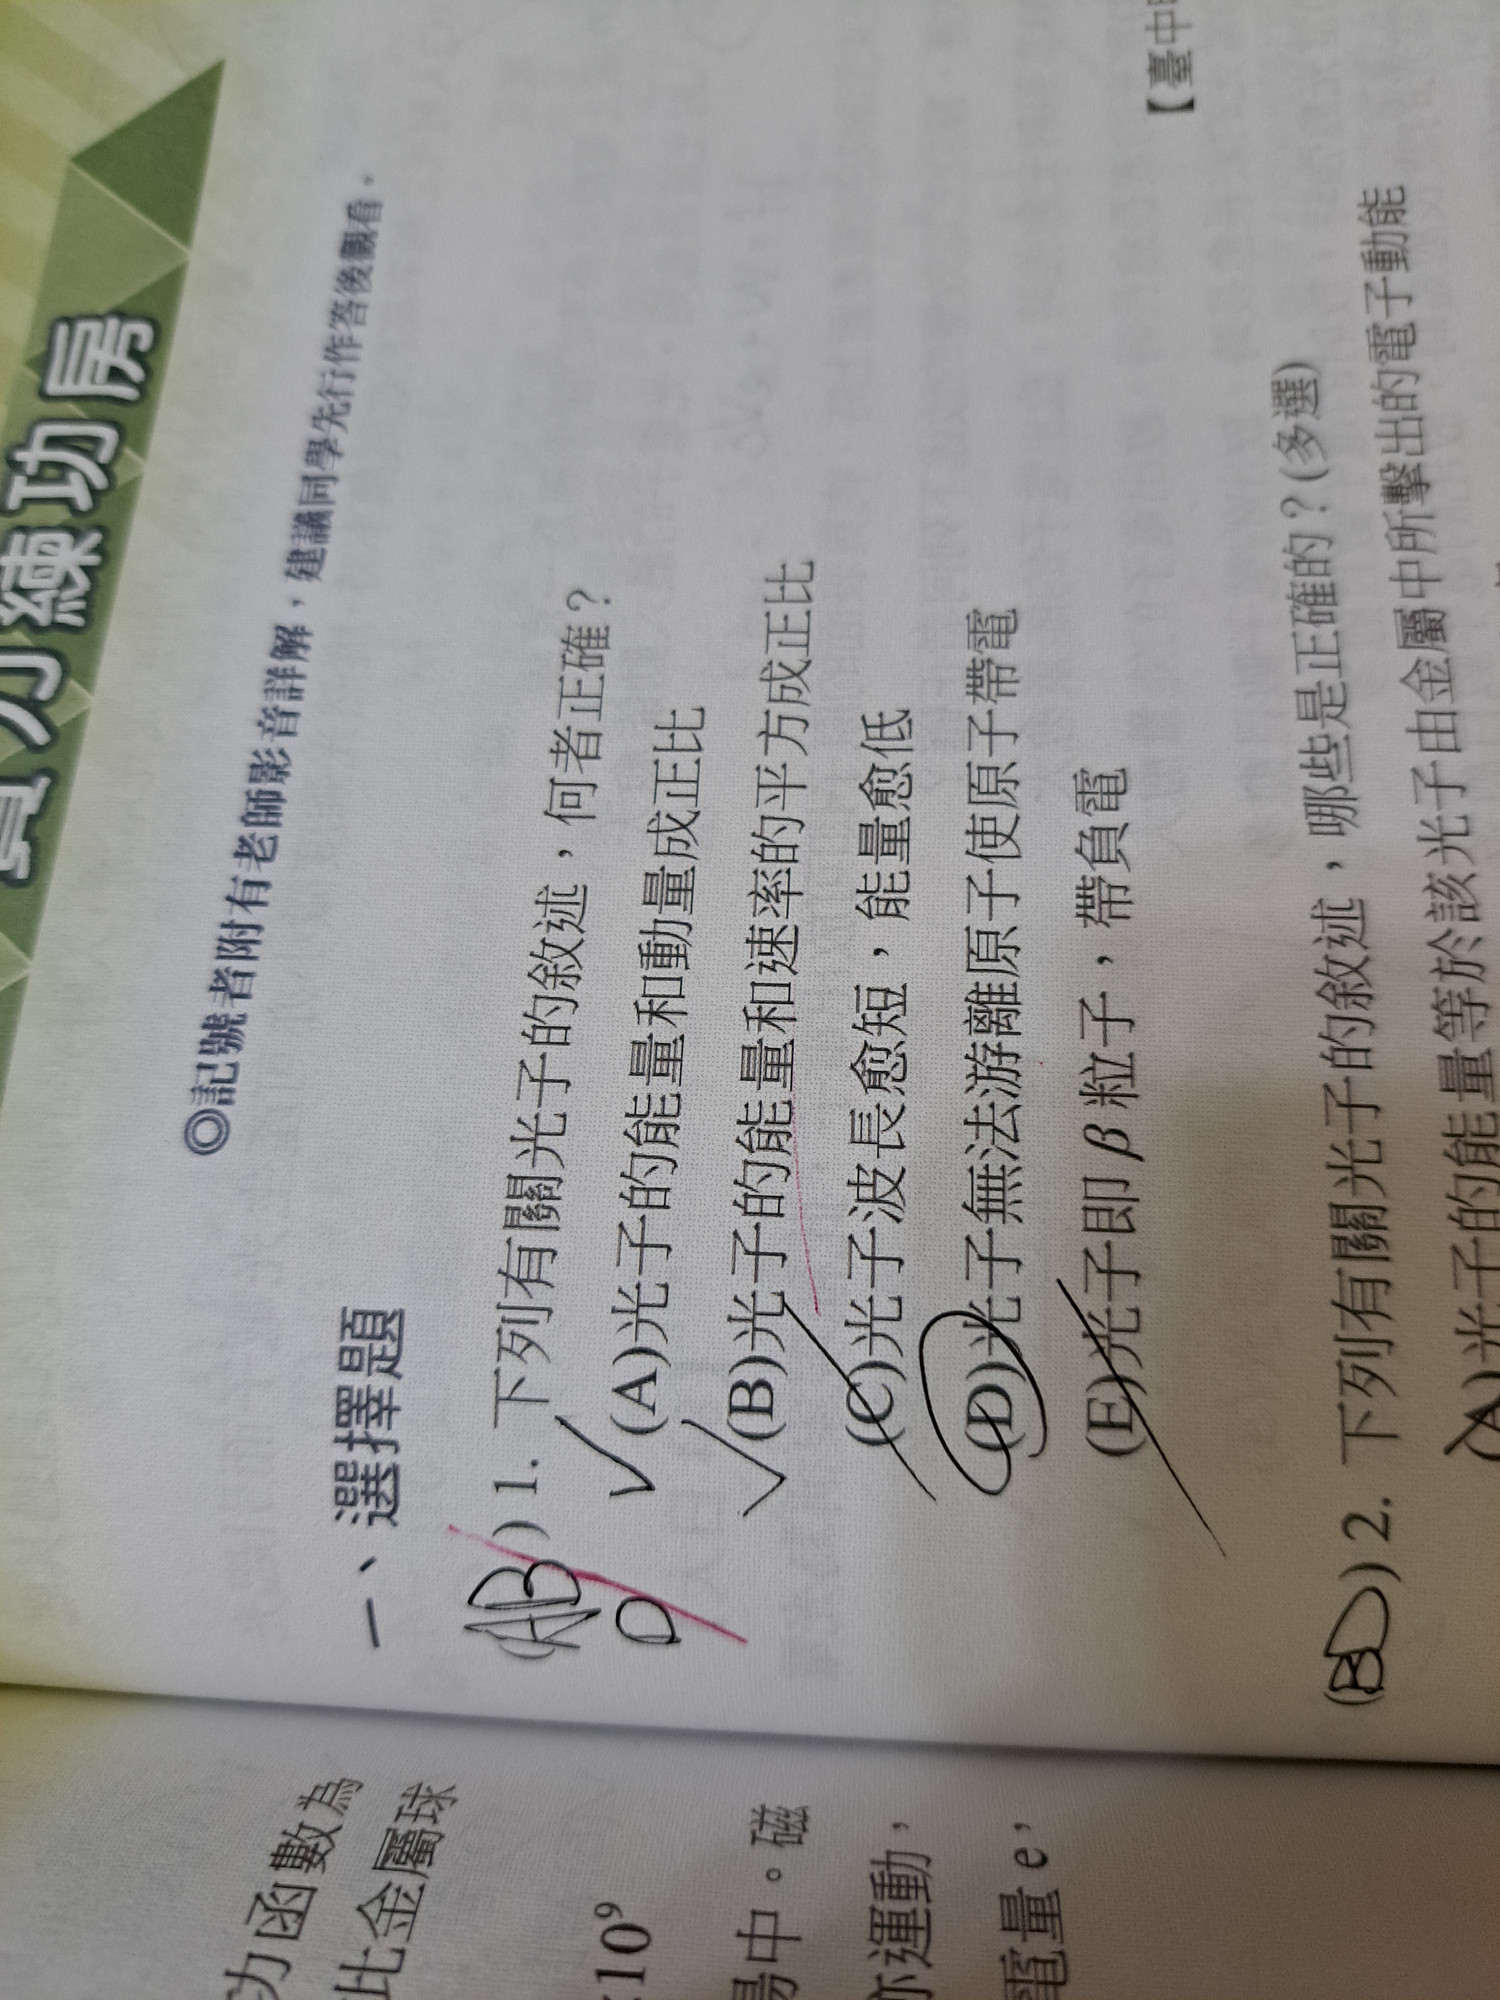 實力練功房
◎記號者附有老師影音詳解，建議同學先行作答後觀看。
一、選擇題
(AB) 1. 下列有關光子的敘述，何者正確？
D
(A)光子的能量和動量成正比
(B)光子的能量和速率的平方成正比
(C)光子波長愈短，能量愈低
(D)光子無法游離原子使原子帶電
(E)光子即 β 粒子，帶負電
【臺中
(BD) 2. 下列有關光子的敘述，哪些是正確的？(多選)
(A)光子的能量等於該光子由金屬中所擊出的電子動能
功函數為
此金屬球
10⁹
場中。磁
亦運動，
電量 e，